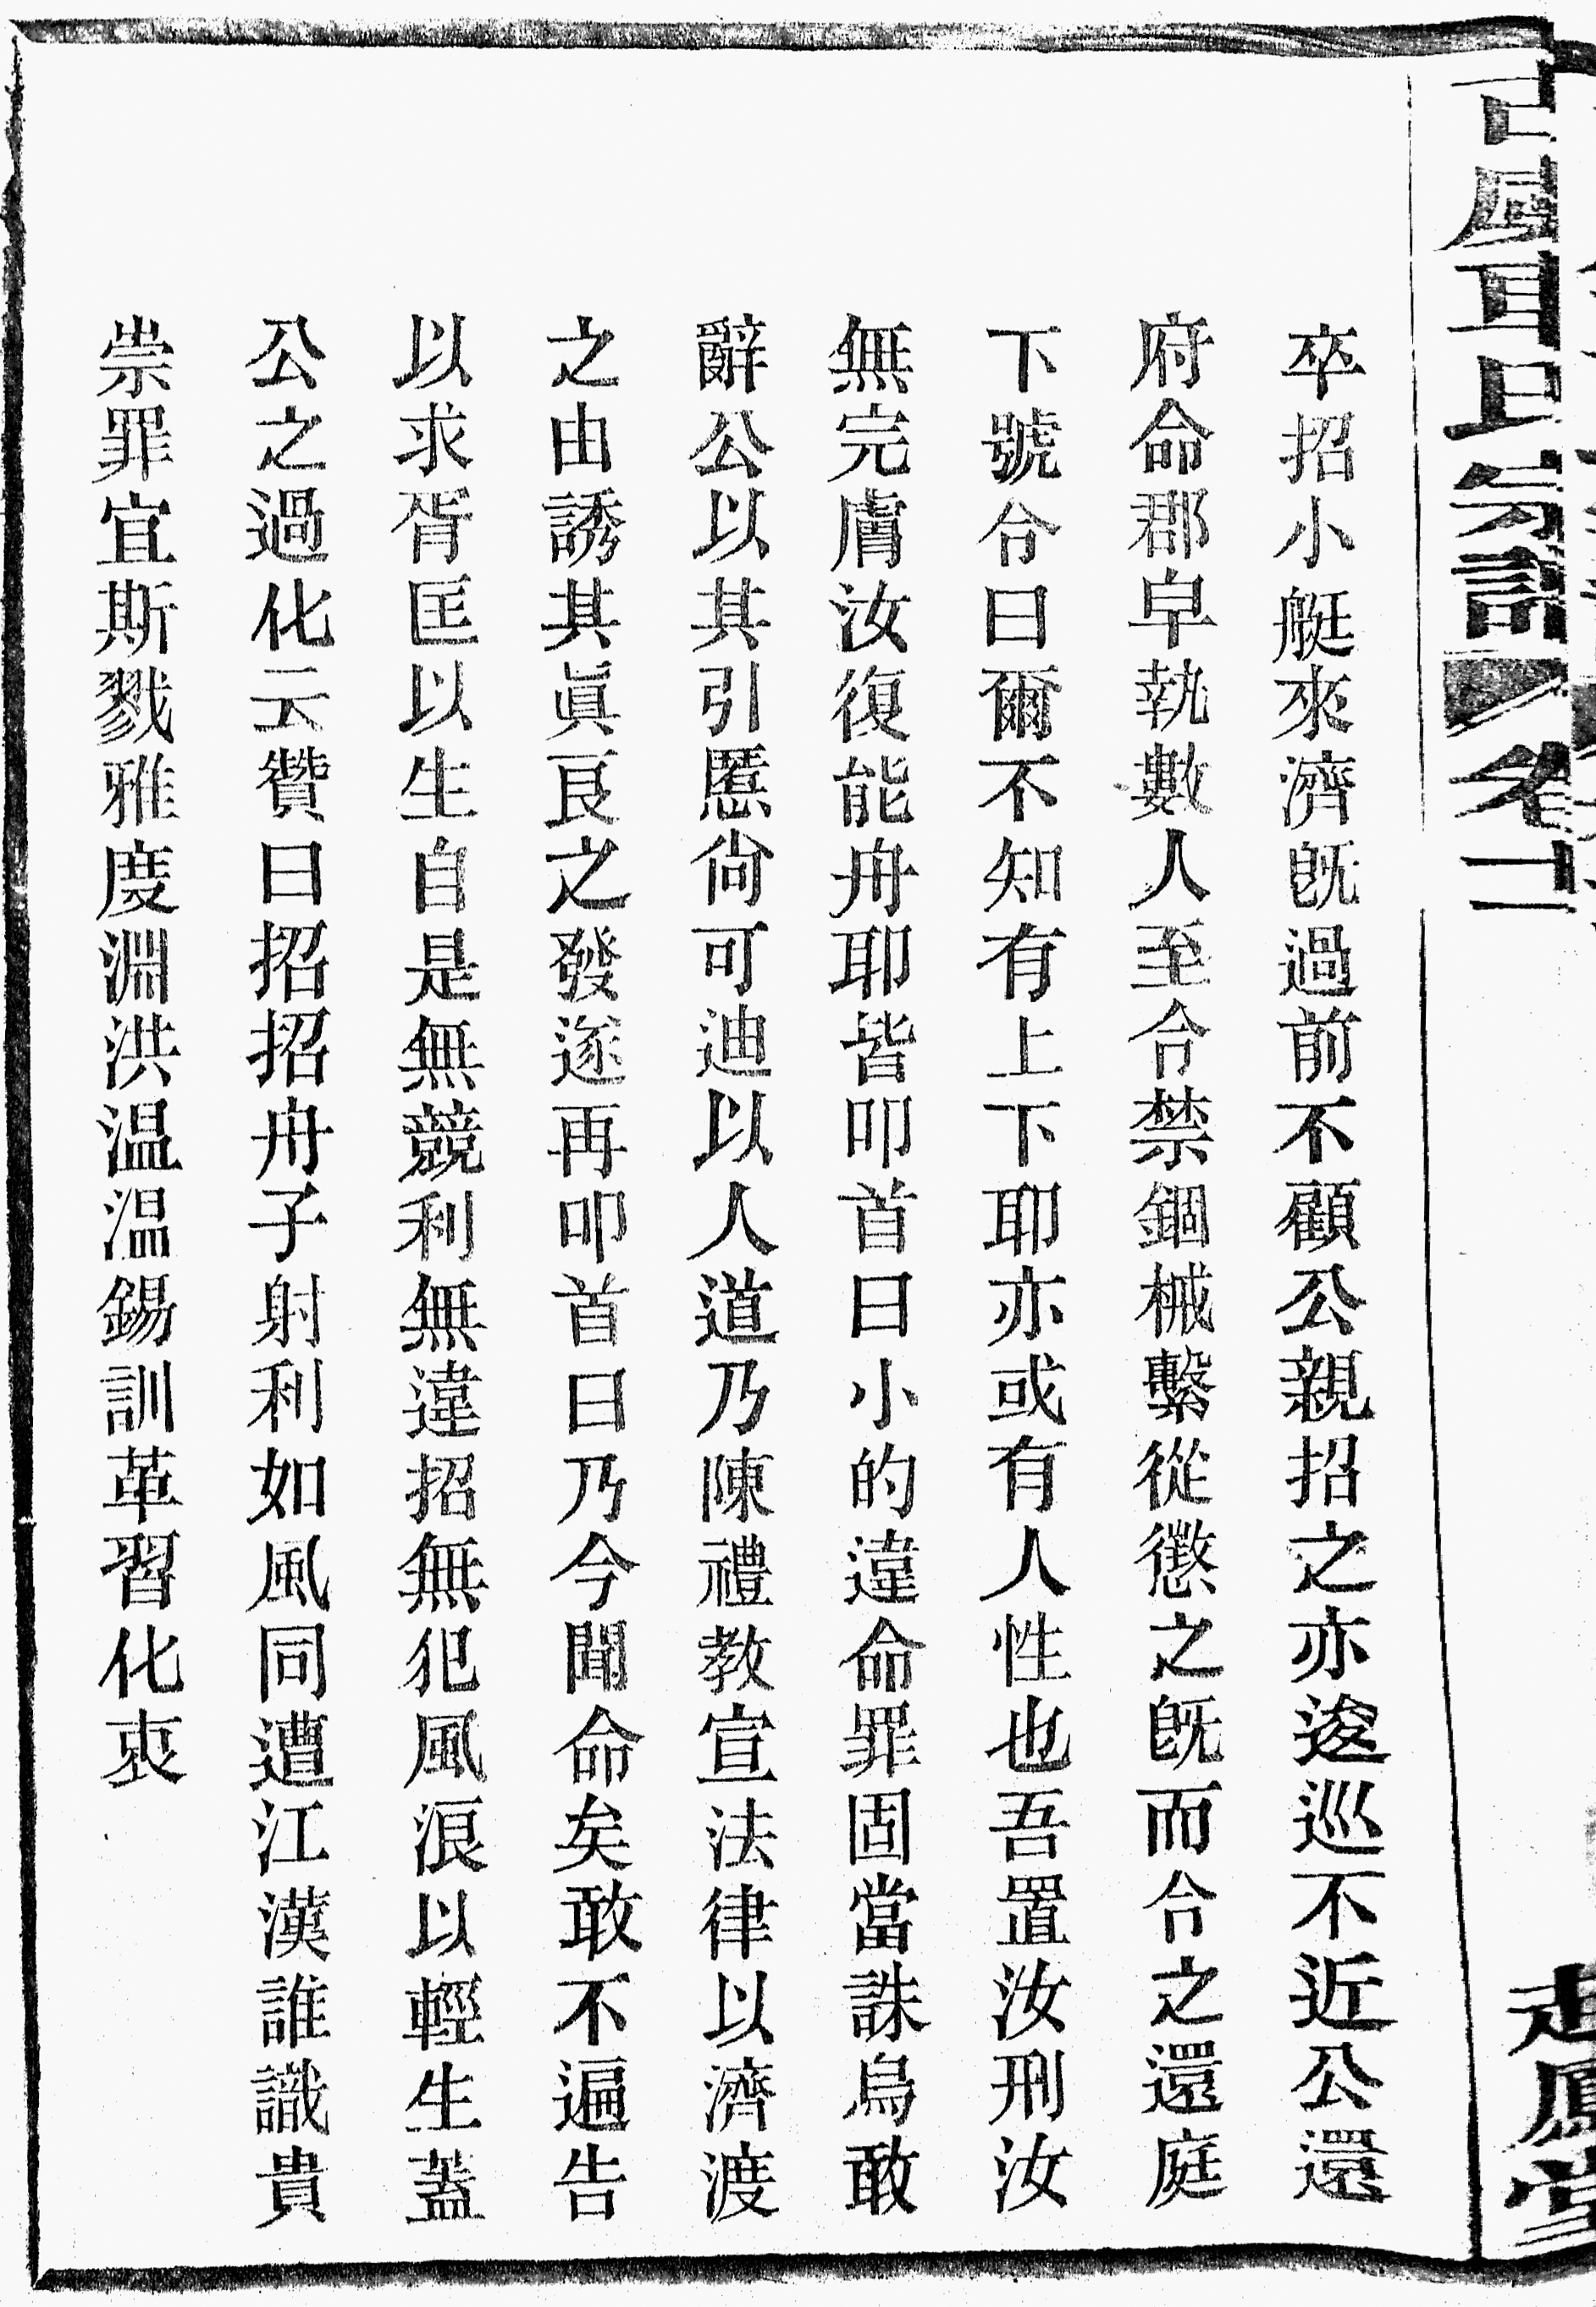 卒招小艇來濟旣過前不顧公親招之亦逡巡不近公還
府命郡皁執數人至令禁錮械繫從懲之旣而令之還庭
下號令曰爾不知有上下耶亦或有人性也吾置汝刑汝
無完膚汝復能舟耶皆叩首曰小的違命罪固當誅烏敢
辭公以其引慝尙可迪以人道乃陳禮教宣法律以濟渡
之由誘其眞良之發遂再叩首曰乃今聞命矣敢不遍告
以求胥匡以生自是無競利無違招無犯風浪以輕生蓋
公之過化云贊曰招招舟子射利如風同遭江漢誰識貴
崇罪宜斯戮雅度淵洪温温錫訓革習化衷